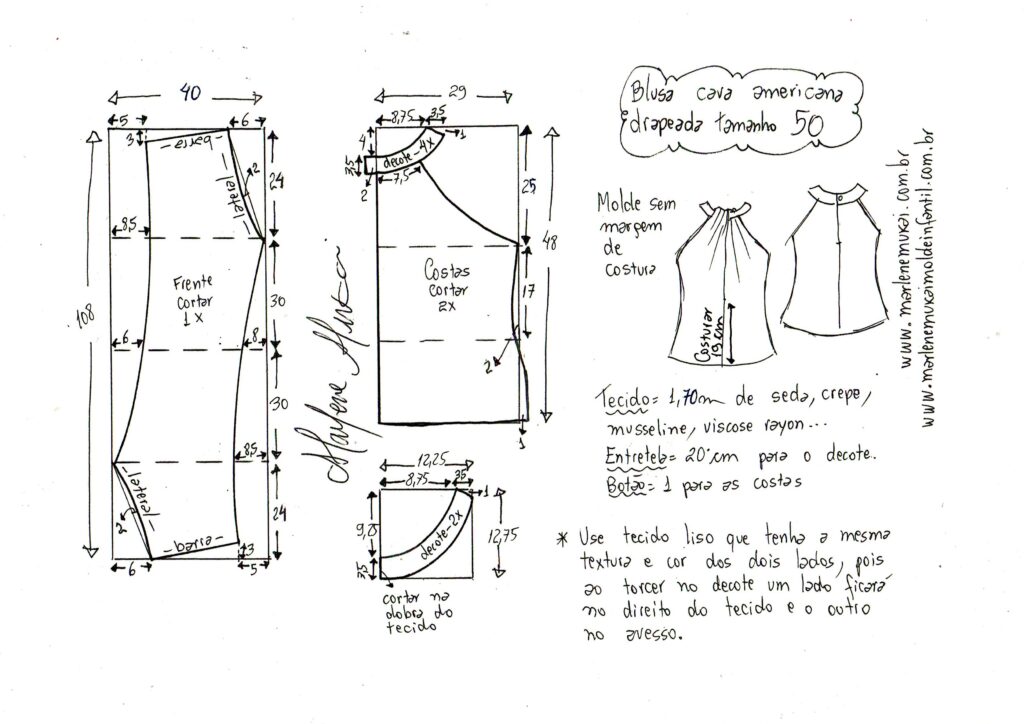 Blusa cava americana
drapeada tamanho 50
40
5
6
3
barra
lateral
2
24
8,5
108
Frente
cortar
1x
30
6
8
30
8,5
lateral
2
24
barra
3
6
5
Marlene Mukai
29
8,75
3,5
1
4
decote-4x
3,5
7,5
2
25
48
Costas
cortar
2x
17
2
1
12,25
8,75
3,5
1
decote-2x
12,75
3,5
cortar na
dobra do
tecido
Molde sem
margem
de
costura
Costurar
19 cm
www.marlenemukai.com.br
www.marlenemukaimoldeinfantil.com.br
Tecido= 1,70m de seda, crepe,
musseline, viscose rayon...
Entretela= 20 cm para o decote.
Botão= 1 para as costas
* Use tecido liso que tenha a mesma
textura e cor dos dois lados, pois
ao torcer no decote um lado ficará
no direito do tecido e o outro
no avesso.